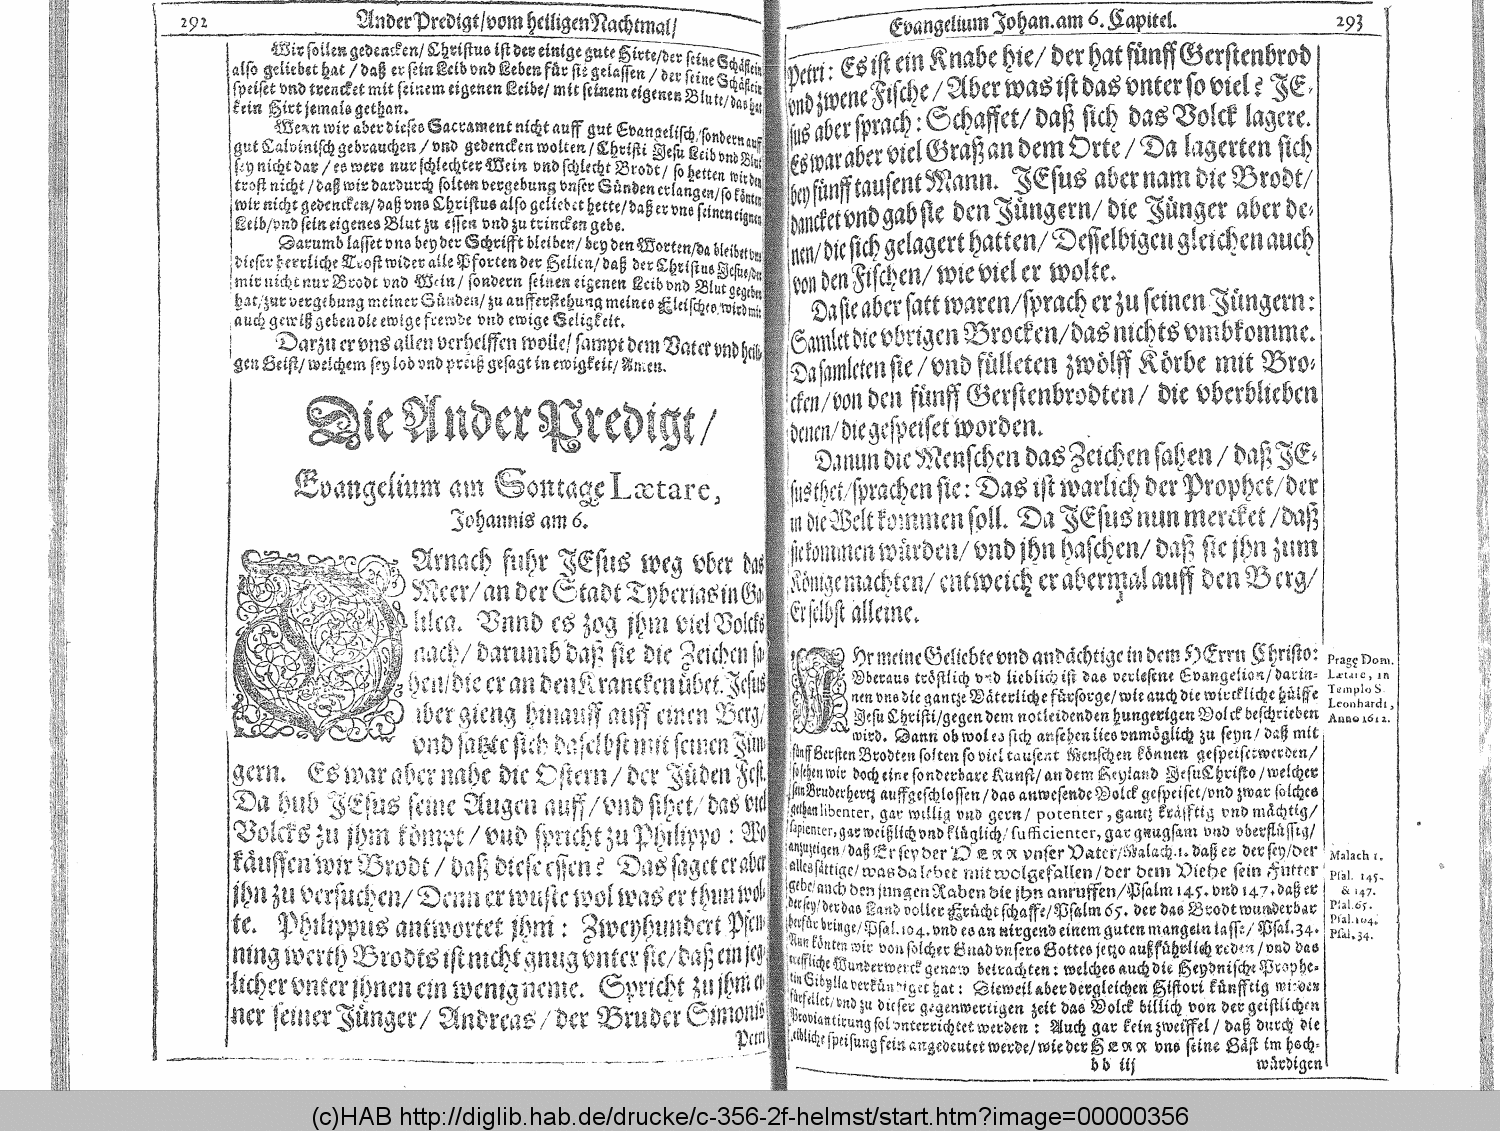 292 Ander Predigt/ vom heiligen Nachtmal/
Wir sollen gedencken/ Christus ist der einige gute Hirte/ der seine Schäflein
also geliebet hat / daß er sein Leib vnd Leben für sie gelassen / der seine Schäflein
speiset vnd trencket mit seinem eigenen Leibe/ mit seinem eigenen Blute/ das hat
kein Hirt jemals gethan.
Wenn wir aber dieses Sacrament nicht auff gut Evangelisch/ sondern auff
gut Calvinisch gebrauchen / vnd gedencken wolten / Christi Jesu Leib vnd Blut
sey nicht dar / es were nur schlechter Wein vnd schlecht Brodt / so hetten wir den
trost nicht / daß wir dardurch solten vergebung vnser Sünden erlangen/ so könten
wir nicht gedencken/ daß vns Christus also geliebet hette/ daß er vns seinen eignen
Leib/ vnd sein eigenes Blut zu essen vnd zu trincken gebe.
Darumb lasset vns bey der Schrifft bleiben/ bey den Worten/ da bleibet vns
dieser herrliche Trost wider alle Pforten der Hellen/ daß der Christus Jesus/ der
mir nicht nur Brodt vnd Wein/ sondern seinen eigenen Leib vnd Blut gegeben
hat/ zur vergebung meiner Sünden/ zu aufferstehung meines Fleisches/ wird mir
auch gewiß geben die ewige frewde vnd ewige Seligkeit.
Darzu er vns allen verhelffen wolle/ sampt dem Vater vnd heili-
gen Geist/ welchem sey lob vnd preiß gesagt in ewigkeit/ Amen.
Die Ander Predigt/
Evangelium am Sontage Lætare,
Johannis am 6.
DArnach fuhr JEsus weg vber das
Meer/ an der Stadt Tyberias in Ga-
lilea. Vnnd es zog jhm viel Volcks
nach/ darumb daß sie die Zeichen sa-
hen/ die er an den Krancken übet. Jesus
aber gieng hinauff auff einen Berg/
vnd satzte sich daselbst mit seinen Jün-
gern. Es war aber nahe die Ostern/ der Jüden Fest.
Da hub JEsus seine Augen auff/ vnd sihet/ das viel
Volcks zu jhm kömpt / vnd spricht zu Philippo : Wo
käuffen wir Brodt / daß diese essen? Das saget er aber
jhn zu versuchen/ Denn er wuste wol was er thun wol-
te. Philippus antwortet jhm : Zweyhundert Pfen-
ning werth Brodts ist nicht gnug vnter sie/ daß ein jeg-
licher vnter jhnen ein wenig neme. Spricht zu jhm ei-
ner seiner Jünger/ Andreas / der Bruder Simonis
Petri
Evangelium Johan. am 6. Capitel. 293
Petri: Es ist ein Knabe hie/ der hat fünff Gerstenbrod
vnd zwene Fische / Aber was ist das vnter so viel? JE-
sus aber sprach : Schaffet/ daß sich das Volck lagere.
Es war aber viel Graß an dem Orte / Da lagerten sich
bey fünff tausent Mann. JEsus aber nam die Brodt/
dancket vnd gab sie den Jüngern/ die Jünger aber de-
nen/ die sich gelagert hatten/ Desselbigen gleichen auch
von den Fischen/ wie viel er wolte.
Da sie aber satt waren/ sprach er zu seinen Jüngern:
Samlet die vbrigen Brocken/ das nichts vmbkomme.
Da samleten sie / vnd fülleten zwölff Körbe mit Bro-
cken/ von den fünff Gerstenbrodten / die vberblieben
denen/ die gespeiset worden.
Da nun die Menschen das Zeichen sahen / daß JE-
sus thet/ sprachen sie: Das ist warlich der Prophet/ der
in die Welt kommen soll. Da JEsus nun mercket / daß
sie kommen würden/ vnd jhn haschen/ daß sie jhn zum
Könige machten/ entweich er abermal auff den Berg/
Er selbst alleine.
IHr meine Geliebte vnd andächtige in dem HErrn Christo:
Vberaus tröstlich vnd lieblich ist das verlesene Evangelion/ darin-
nen vns die gantze Väterliche fürsorge/ wie auch die wirckliche hülffe
Jesu Christi/ gegen dem notleidenden hungerigen Volck beschrieben
wird. Dann ob wol es sich ansehen lies vnmöglich zu seyn/ daß mit
fünff Gersten Brodten solten so viel tausent Menschen können gespeiset werden/
so sehen wir doch eine sonderbare Kunst/ an dem Heyland Jesu Christo / welcher
sein Bruderhertz auffgeschlossen / das anwesende Volck gespeiset/ vnd zwar solches
gethan libenter, gar willig vnd gern/ potenter, gantz kräfftig vnd mächtig/
sapienter, gar weißlich vnd klüglich/ sufficienter, gar gnugsam vnd vberflüssig/
anzuzeigen/ daß Er sey der HERR vnser Vater/ Malach. 1. daß er der sey/ der
alles sättige/ was da lebet mit wolgefallen / der dem Viehe sein Futter
gebe/ auch den jungen Raben die jhn anruffen/ Psalm 145. vnd 147. daß er
der sey/ der das Land voller Frücht schaffe/ Psalm 65. der das Brodt wunderbar
herfür bringe/ Psal. 104. vnd es an nirgend einem guten mangeln lasse/ Psal. 34.
Nun könten wir von solcher Gnad vnsers Gottes jetzo außführlich reden / vnd das
treffliche Wunderwerck genaw betrachten: welches auch die Heydnische Prophe-
tin Sibylla verkündiget hat : Dieweil aber dergleichen Histori künfftig wieder
fürfellet/ vnd zu dieser gegenwertigen zeit das Volck billich von der geistlichen
Proviantirung sol vnterrichtet werden : Auch gar kein zweiffel / daß durch die
leibliche speisung fein angedeutet werde/ wie der HERR vns seine Gäst im hoch-
bb iij würdigen
Pragę Dom.
Lætare, in
Templo S.
Leonhardi,
Anno 1612.
Malach 1.
Psal. 145.
& 147.
Psal. 65.
Psal. 104.
Psal. 34.
(c)HAB http://diglib.hab.de/drucke/c-356-2f-helmst/start.htm?image=00000356